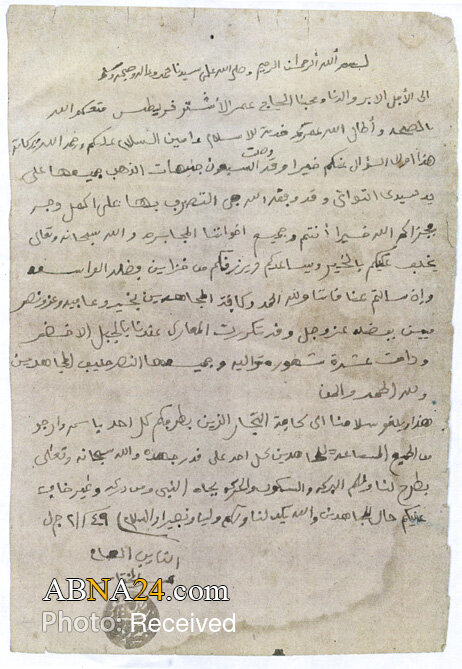 بسم الله الرحمن الرحيم وصلى الله على سيدنا محمد وعلى آله وصحبه وسلم
الى الأجل الابر والدنا ومحبنا الحاج عمر الأشتر متعكم الله
بالصحة وأطال الله عمركم خدمة للاسلام وامين السلام عليكم ورحمة الله وبركاته
هذا اولا السؤال عنكم خيرا وقد وصلت السبعون جنيهات الذهب جميعها على
يد سيدى التواتى وقد وبعد الله جرى التصرف بها على اكمل وجه
جزاكم الله خيرا أنتم وجميع اخواننا والله سبحانه وتعالى
يخلف عليكم بالخير ويساعدكم ويرزقكم من خزاين فضله الواسعه
وإن سألتم عنا فإننا ولله الحمد وكافة المجاهدين بخير وعافيه وعز ونصر
من الله عز وجل وقد تكررت المعارك عندنا بالجبل الاخضر
ودامت عشرة شهور متواليه وجميعها النصر حليف المجاهدين
ولله الحمد والمنه
هذا وبلغو سلامنا الى كافة التجار الذين بطرفكم كل احد باسمه وارجو
من الجميع المساعدة للمجاهدين كل احد على قدر جهده والله سبحانه وتعالى
يطرح لنا ولكم البركه والسكون والحركه بجاه النبى ومن وغير خافى
عليكم حال المجاهدين والله يكون لنا ولكم وليا ونصيرا والسلام
النايب العام
عمر المختار
ABNA24.com
Photo: Received